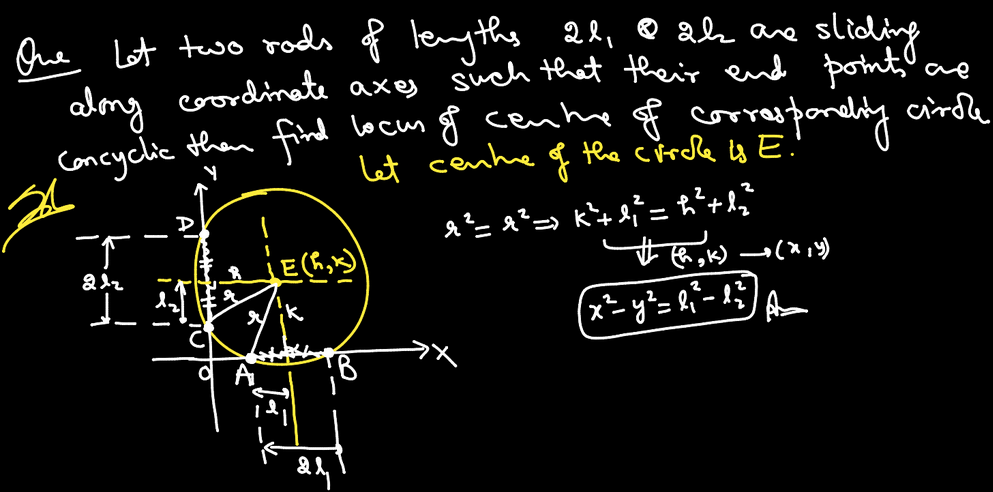 Que Let two rods of lengths 2l₁ & 2l₂ are sliding
along coordinate axes such that their end points are
concyclic then find locus of centre of corresponding circle
Let centre of the circle is E.
Sol
Y
D
2l₂
l₂
h
E(h,k)
r
r
k
C
O
A
B
X
l₁
2l₁
r² = r² ⇒ k² + l₁² = h² + l₂²
(h,k) → (x,y)
x² - y² = l₁² - l₂² Ans